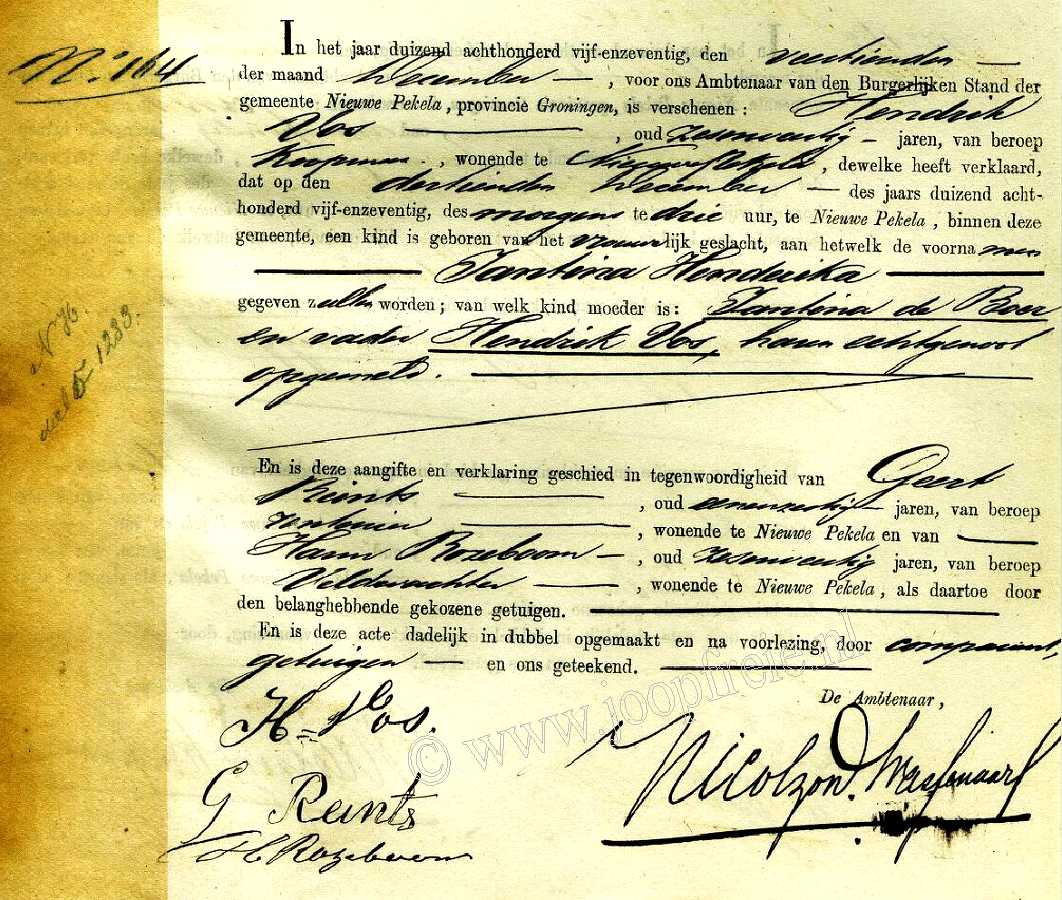 Nº 164
In het jaar duizend achthonderd vijf-enzeventig, den veertienden
der maand December, voor ons Ambtenaar van den Burgerlijken Stand der
gemeente Nieuwe Pekela, provincie Groningen, is verschenen: Hendrik
Vos, oud zesenveertig jaren, van beroep
Koopman, wonende te Nieuwe Pekela, dewelke heeft verklaard,
dat op den dertienden December des jaars duizend acht-
honderd vijf-enzeventig, des morgens te drie uur, te Nieuwe Pekela, binnen deze
gemeente, een kind is geboren van het vrouwelijk geslacht, aan hetwelk de voornamen
Jantina Henderika
gegeven zullen worden; van welk kind moeder is: Jantina de Boer
en vader Hendrik Vos, haren echtgenoot
opgemeld.
N H.
deel 5 1233.
En is deze aangifte en verklaring geschied in tegenwoordigheid van Geert
Reints, oud eenenzestig jaren, van beroep
, wonende te Nieuwe Pekela en van
Harm Rozeboom, oud zesenveertig jaren, van beroep
Veldwachter, wonende te Nieuwe Pekela, als daartoe door
den belanghebbende gekozene getuigen.
En is deze acte dadelijk in dubbel opgemaakt en na voorlezing, door comparant,
getuigen en ons geteekend.
De Ambtenaar,
H. Vos.
G Reints
H Rozeboom
Nicolzon.
© www.joopfrele.nl